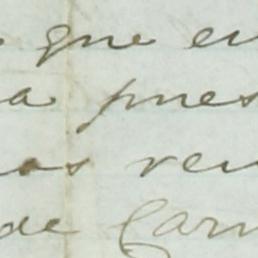 que en
a pues
as ven
de Carn